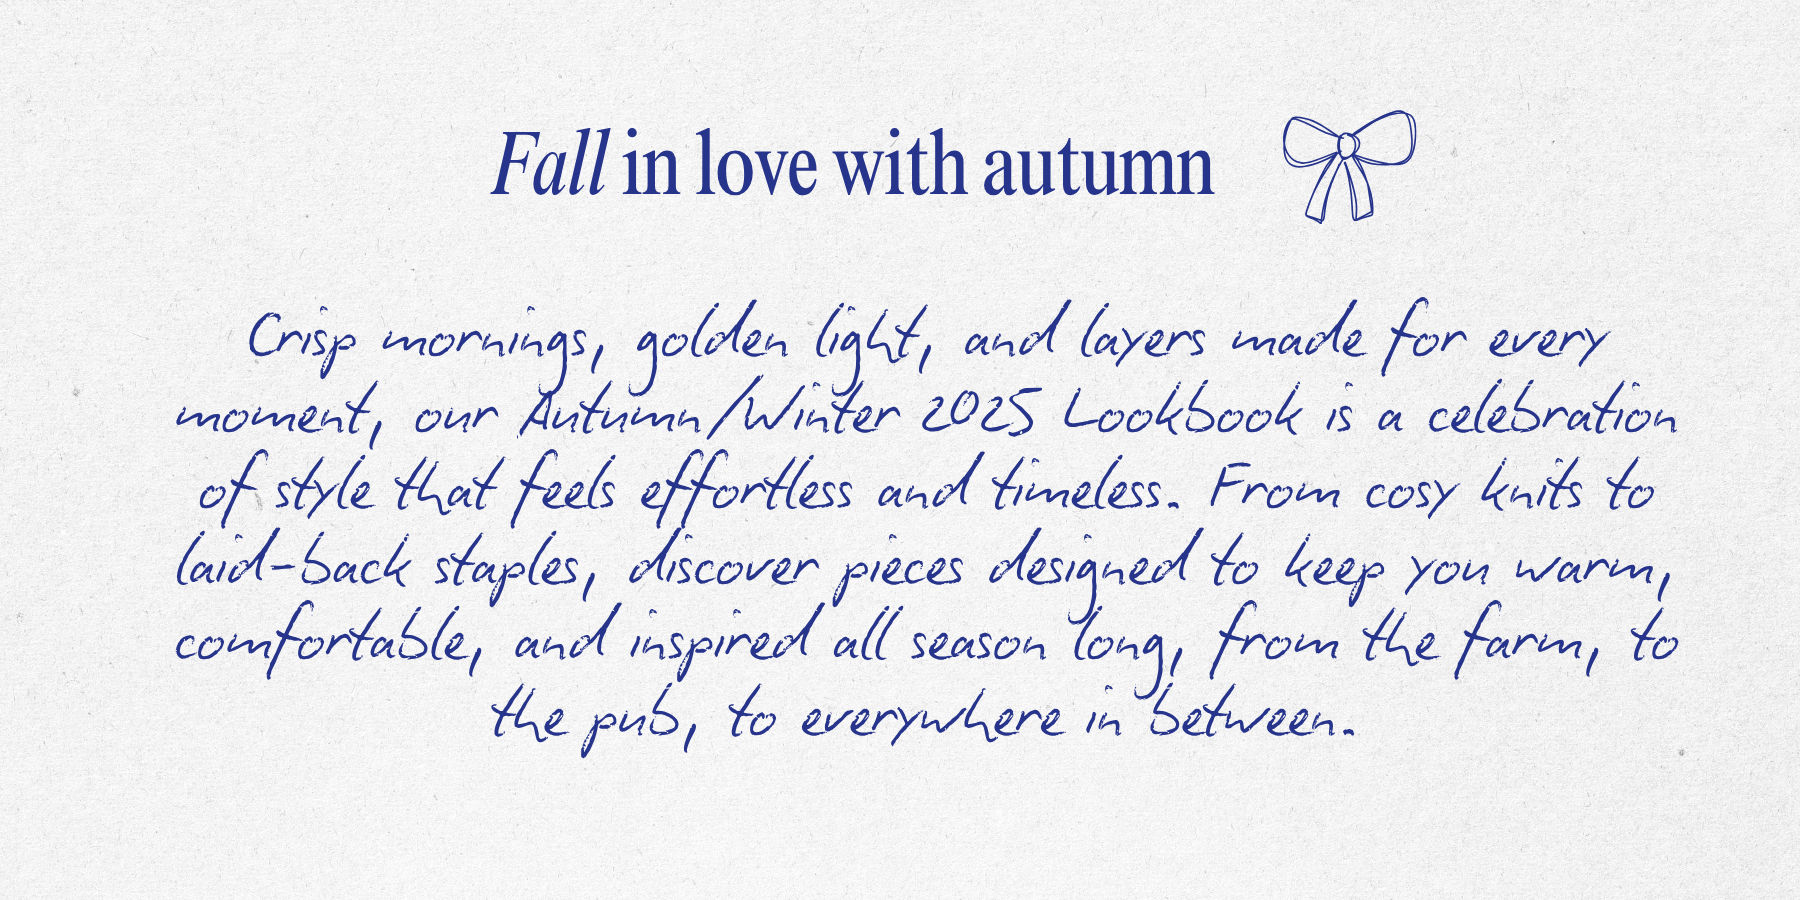 Fall in love with autumn
Crisp mornings, golden light, and layers made for every
moment, our Autumn/Winter 2025 Lookbook is a celebration
of style that feels effortless and timeless. From cosy knits to
laid-back staples, discover pieces designed to keep you warm,
comfortable, and inspired all season long, from the farm, to
the pub, to everywhere in between.